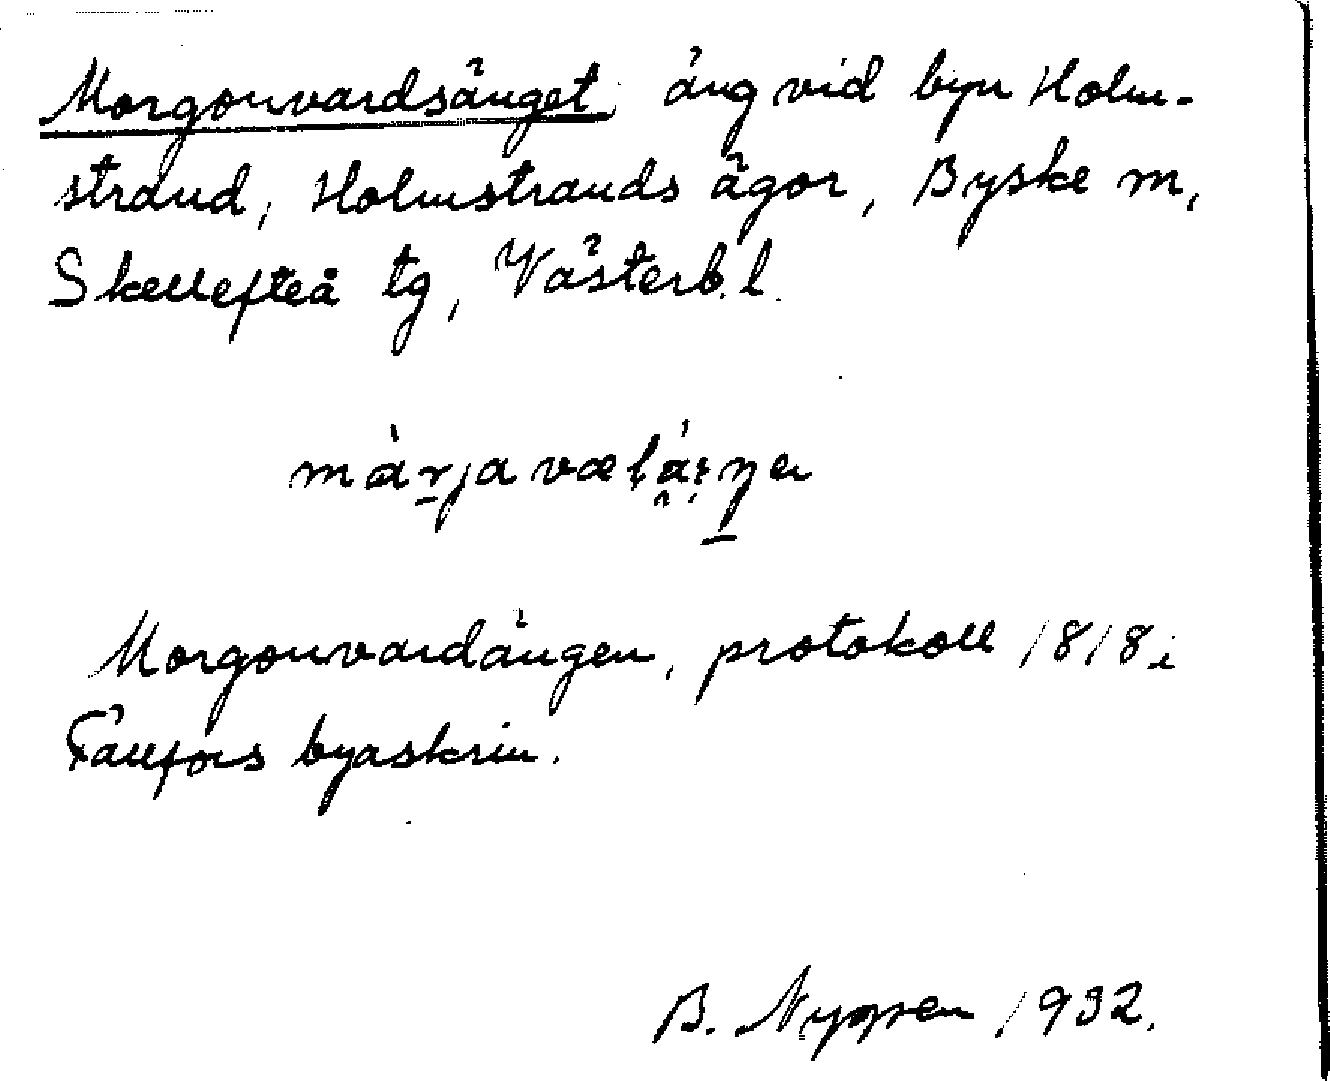 Morgonvardsänget, äng vid byn Holm-
strand, Holmstrands ägor, Byske sn,
Skellefteå tg, Västerb. l.
Morgonvardängen, protokoll 1818 i
Fällfors byaskrin.
B. Nygren 1932.